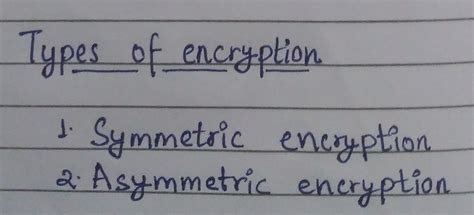 Types of encryption
1. Symmetric encryption
2. Asymmetric encryption